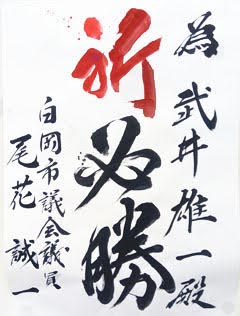 為武井雄一殿
祈必勝
白岡市議会議員
尾花誠一